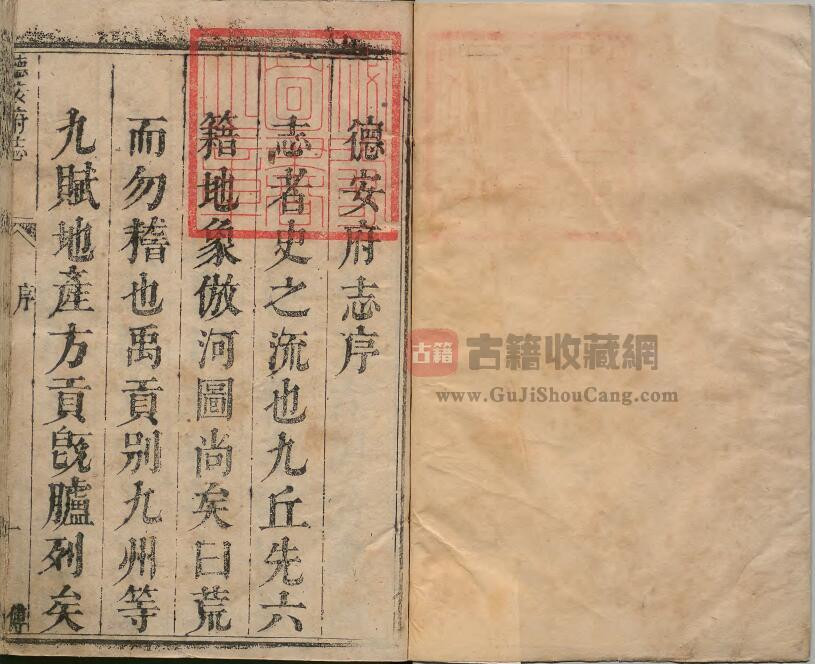 德安府志序
志者史之流也九丘先六
籍地象倣河圖尚矣曰荒
而勿稽也禹貢別九州等
九賦地產方貢旣臚列矣
德安府志
序
一
傅
古籍
古籍收藏網
www.GuJiShouCang.com